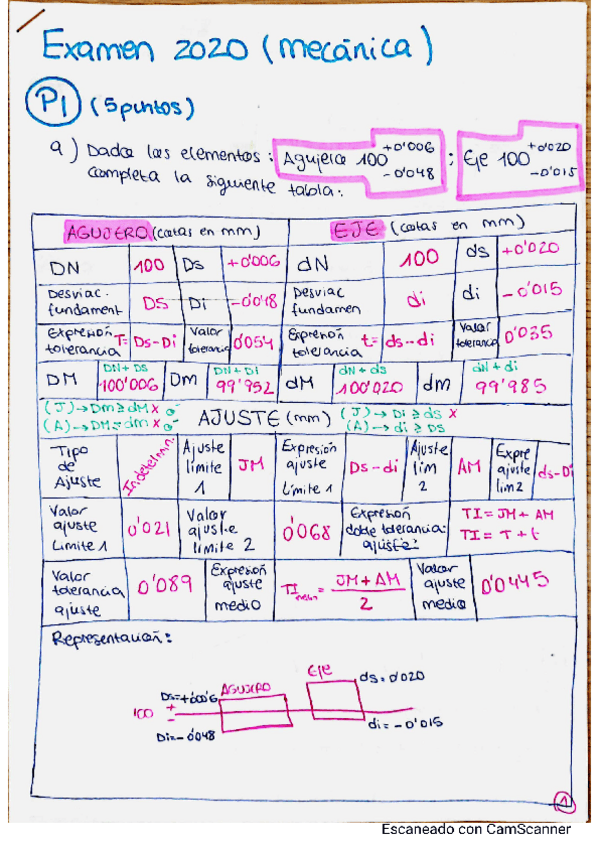 Examen 2020 (mecánica)
P1 (5 puntos)
a) Dados los elementos: Agujero 100 +0'006 -0'048 ; Eje 100 +0'020 -0'015
Completa la siguiente tabla:
AGUJERO (cotas en mm) EJE (cotas en mm)
DN 100 Ds +0'006 dN 100 ds +0'020
Desviac. fundament DS Di -0'048 Desviac fundamen di di -0'015
Expresión tolerancia T= Ds-Di Valor tolerancia 0'054 Expresión tolerancia t= ds-di Valor tolerancia 0'035
DM DN+DS 100'006 Dm DN+Di 99'952 dM dN+ds 100'020 dm dN+di 99'985
(J)→Dm≥dM x o
(A)→DM≤dm x o
AJUSTE (mm)
(J)→Di≥ds x
(A)→di≥DS
Tipo de Ajuste Indetermin. Ajuste límite 1 JM Expresión ajuste límite 1 Ds-di Ajuste lim 2 AM Expre ajuste lim 2 ds-Di
Valor ajuste límite 1 0'021 Valor ajuste límite 2 0'068 Expresión doble tolerancia ajuste: TI=JM+AM
TI= T+t
Valor tolerancia ajuste 0'089 Expresión ajuste medio TI = JM+AM / 2 Valor ajuste medio 0'0445
Representación:
Eje
ds=0'020
Ds=+0'006 AGUJERO
100 + -
Di=-0'048
di=-0'015
1
Escaneado con CamScanner